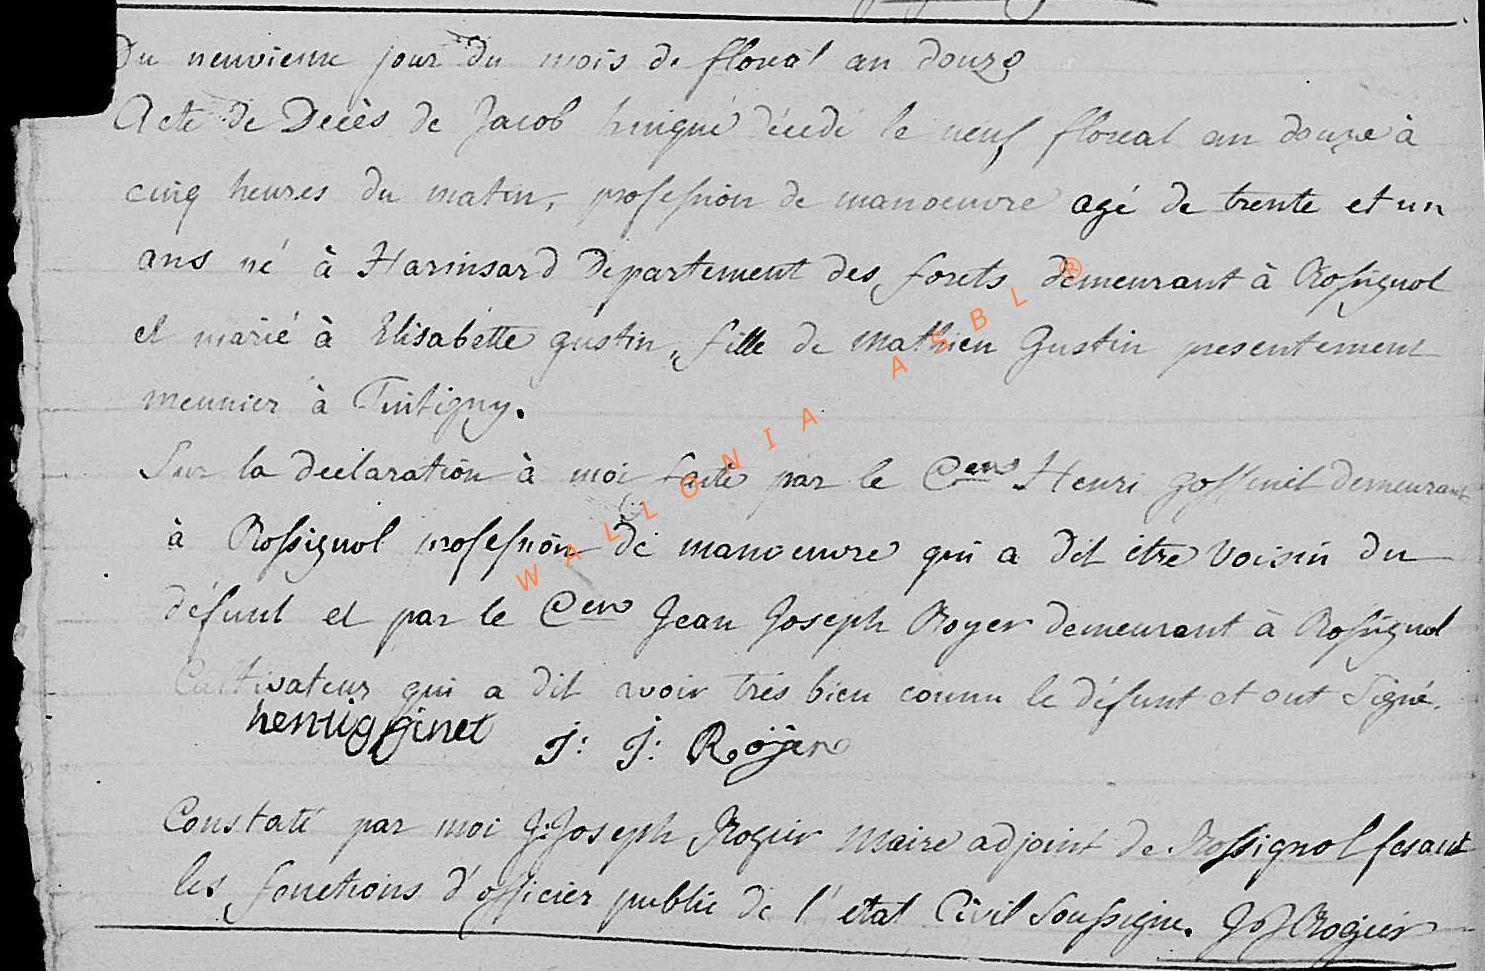 Du neuvieme jour du mois de floreal an douze
Acte de Decès de Jacob hingué décedé le neuf floreal an douze à
cinq heures du matin, profession de manoeuvre agé de trente et un
ans né à Harinsard departement des forets demeurant à Rossignol
et marié à Elisabette gustin, fille de mathieu Gustin presentement
meunier à Tintigny.
Sur la declaration à moi faite par le Cen Henri gossinet demeurant
à Rossignol profession de manoeuvre qui a dit être voisin du
défunt et par le Cen Jean Joseph Royer demeurant à Rossignol
Cultivateur qui a dit avoir très bien connu le défunt et ont signé.
henri J: J: Royer
Constaté par moi J: Joseph Rogier Maire adjoint de Rossignol fesant
les fonctions d'officier public de l'état Civil Soussigne. Rogier
WALLONIA ASBL ®